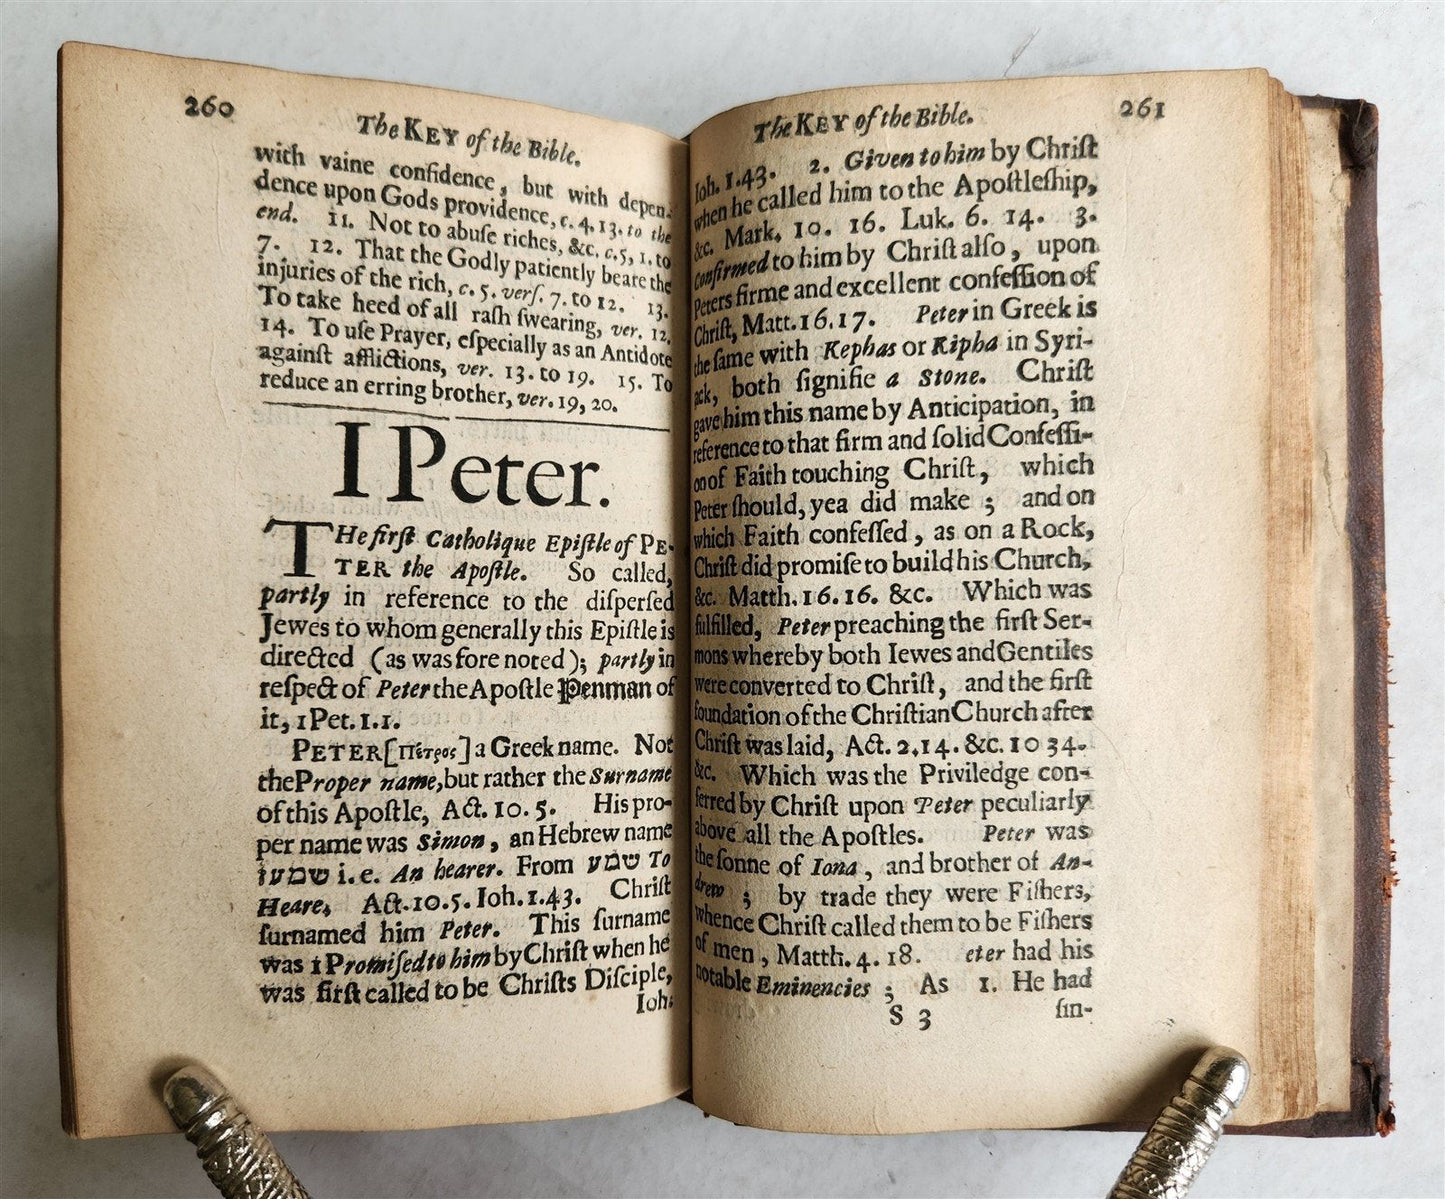 260
The KEY of the Bible.
with vaine confidence, but with depen-
dence upon Gods providence, c. 4. 13. to the
end. 11. Not to abuſe riches, &c. c. 5, 1. to
7. 12. That the Godly patiently beare the
injuries of the rich, c. 5. verſ. 7. to 12. 13.
To take heed of all raſh ſwearing, ver. 12.
14. To uſe Prayer, eſpecially as an Antidote
againſt afflictions, ver. 13. to 19. 15. To
reduce an erring brother, ver. 19, 20.
I Peter.
THe firſt Catholique Epiſtle of PE-
TER the Apoſtle. So called,
partly in reference to the diſperſed
Jewes to whom generally this Epiſtle is
directed (as was fore noted); partly in
reſpect of Peter the Apoſtle Penman of
it, 1 Pet. 1. 1.
PETER [Πέτρος] a Greek name. Not
the Proper name, but rather the Surname
of this Apoſtle, Act. 10. 5. His pro-
per name was Simon, an Hebrew name
שמעון i.e. An hearer. From שמע To
Heare, Act. 10. 5. Ioh. 1. 43. Chriſt
ſurnamed him Peter. This ſurname
was 1 Promiſed to him by Chriſt when he
was firſt called to be Chriſts Diſciple,
Ioh.
The KEY of the Bible.
261
Ioh. 1. 43. 2. Given to him by Chriſt
when he called him to the Apoſtleſhip,
&c. Mark. 10. 16. Luk. 6. 14. 3.
Confirmed to him by Chriſt alſo, upon
Peters firme and excellent confeſſion of
Chriſt, Matt. 16. 17. Peter in Greek is
the ſame with Kephas or Kipha in Syri-
ack, both ſignifie a Stone. Chriſt
gave him this name by Anticipation, in
reference to that firm and ſolid Confeſſi-
on of Faith touching Chriſt, which
Peter ſhould, yea did make; and on
which Faith confeſſed, as on a Rock,
Chriſt did promiſe to build his Church,
&c. Matth. 16. 16. &c. Which was
fulfilled, Peter preaching the firſt Ser-
mons whereby both Iewes and Gentiles
were converted to Chriſt, and the firſt
foundation of the Chriſtian Church after
Chriſt was laid, Act. 2, 14. &c. 10 34.
&c. Which was the Priviledge con-
ferred by Chriſt upon Peter peculiarly
above all the Apoſtles. Peter was
the ſonne of Iona, and brother of An-
drew; by trade they were Fiſhers,
whence Chriſt called them to be Fiſhers
of men, Matth. 4. 18. eter had his
notable Eminencies; As 1. He had
S 3 ſin-